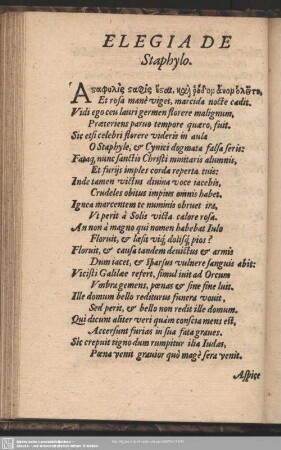 ELEGIA DE
Staphylo.
Et rosa manè viget, marcida nocte cadit.
Vidi ego ceu lauri germen florere malignum,
Præteriens paruo tempore quæro, fuit.
Sic etsi celebri florere videris in aula
O Staphyle, & Cynici dogmata falsa seris:
nunc sanctis Christi minitaris alumnis,
Et furijs imples corda reperta tuis:
Inde tamen victus diuina voce tacebis,
Crudeles obitus impius omnis habet.
Ignea marcentem te numinis obruet ira,
Vt perit à Solis victa calore rosa.
An non à magno qui nomen habebat Iulo
Floruit, & læsit viq; dolisq; pios?
Floruit, & causa tandem deuictus & armis
Dum iacet, & sparsus vulnere sanguis abit:
Vicisti Galilæe refert, simul iuit ad Orcum
Vmbra gemens, pœnas & sine fine luit.
Ille domum bello rediturus funera vouit,
Sed perit, & bello non redit ille domum.
Qui dicunt aliter veri quàm conscia mens est,
Accersunt furias in sua fata graues.
Sic crepuit tigno dum rumpitur ilia Iudas,
Pœna venit grauior quò magè sera venit.
Aspice